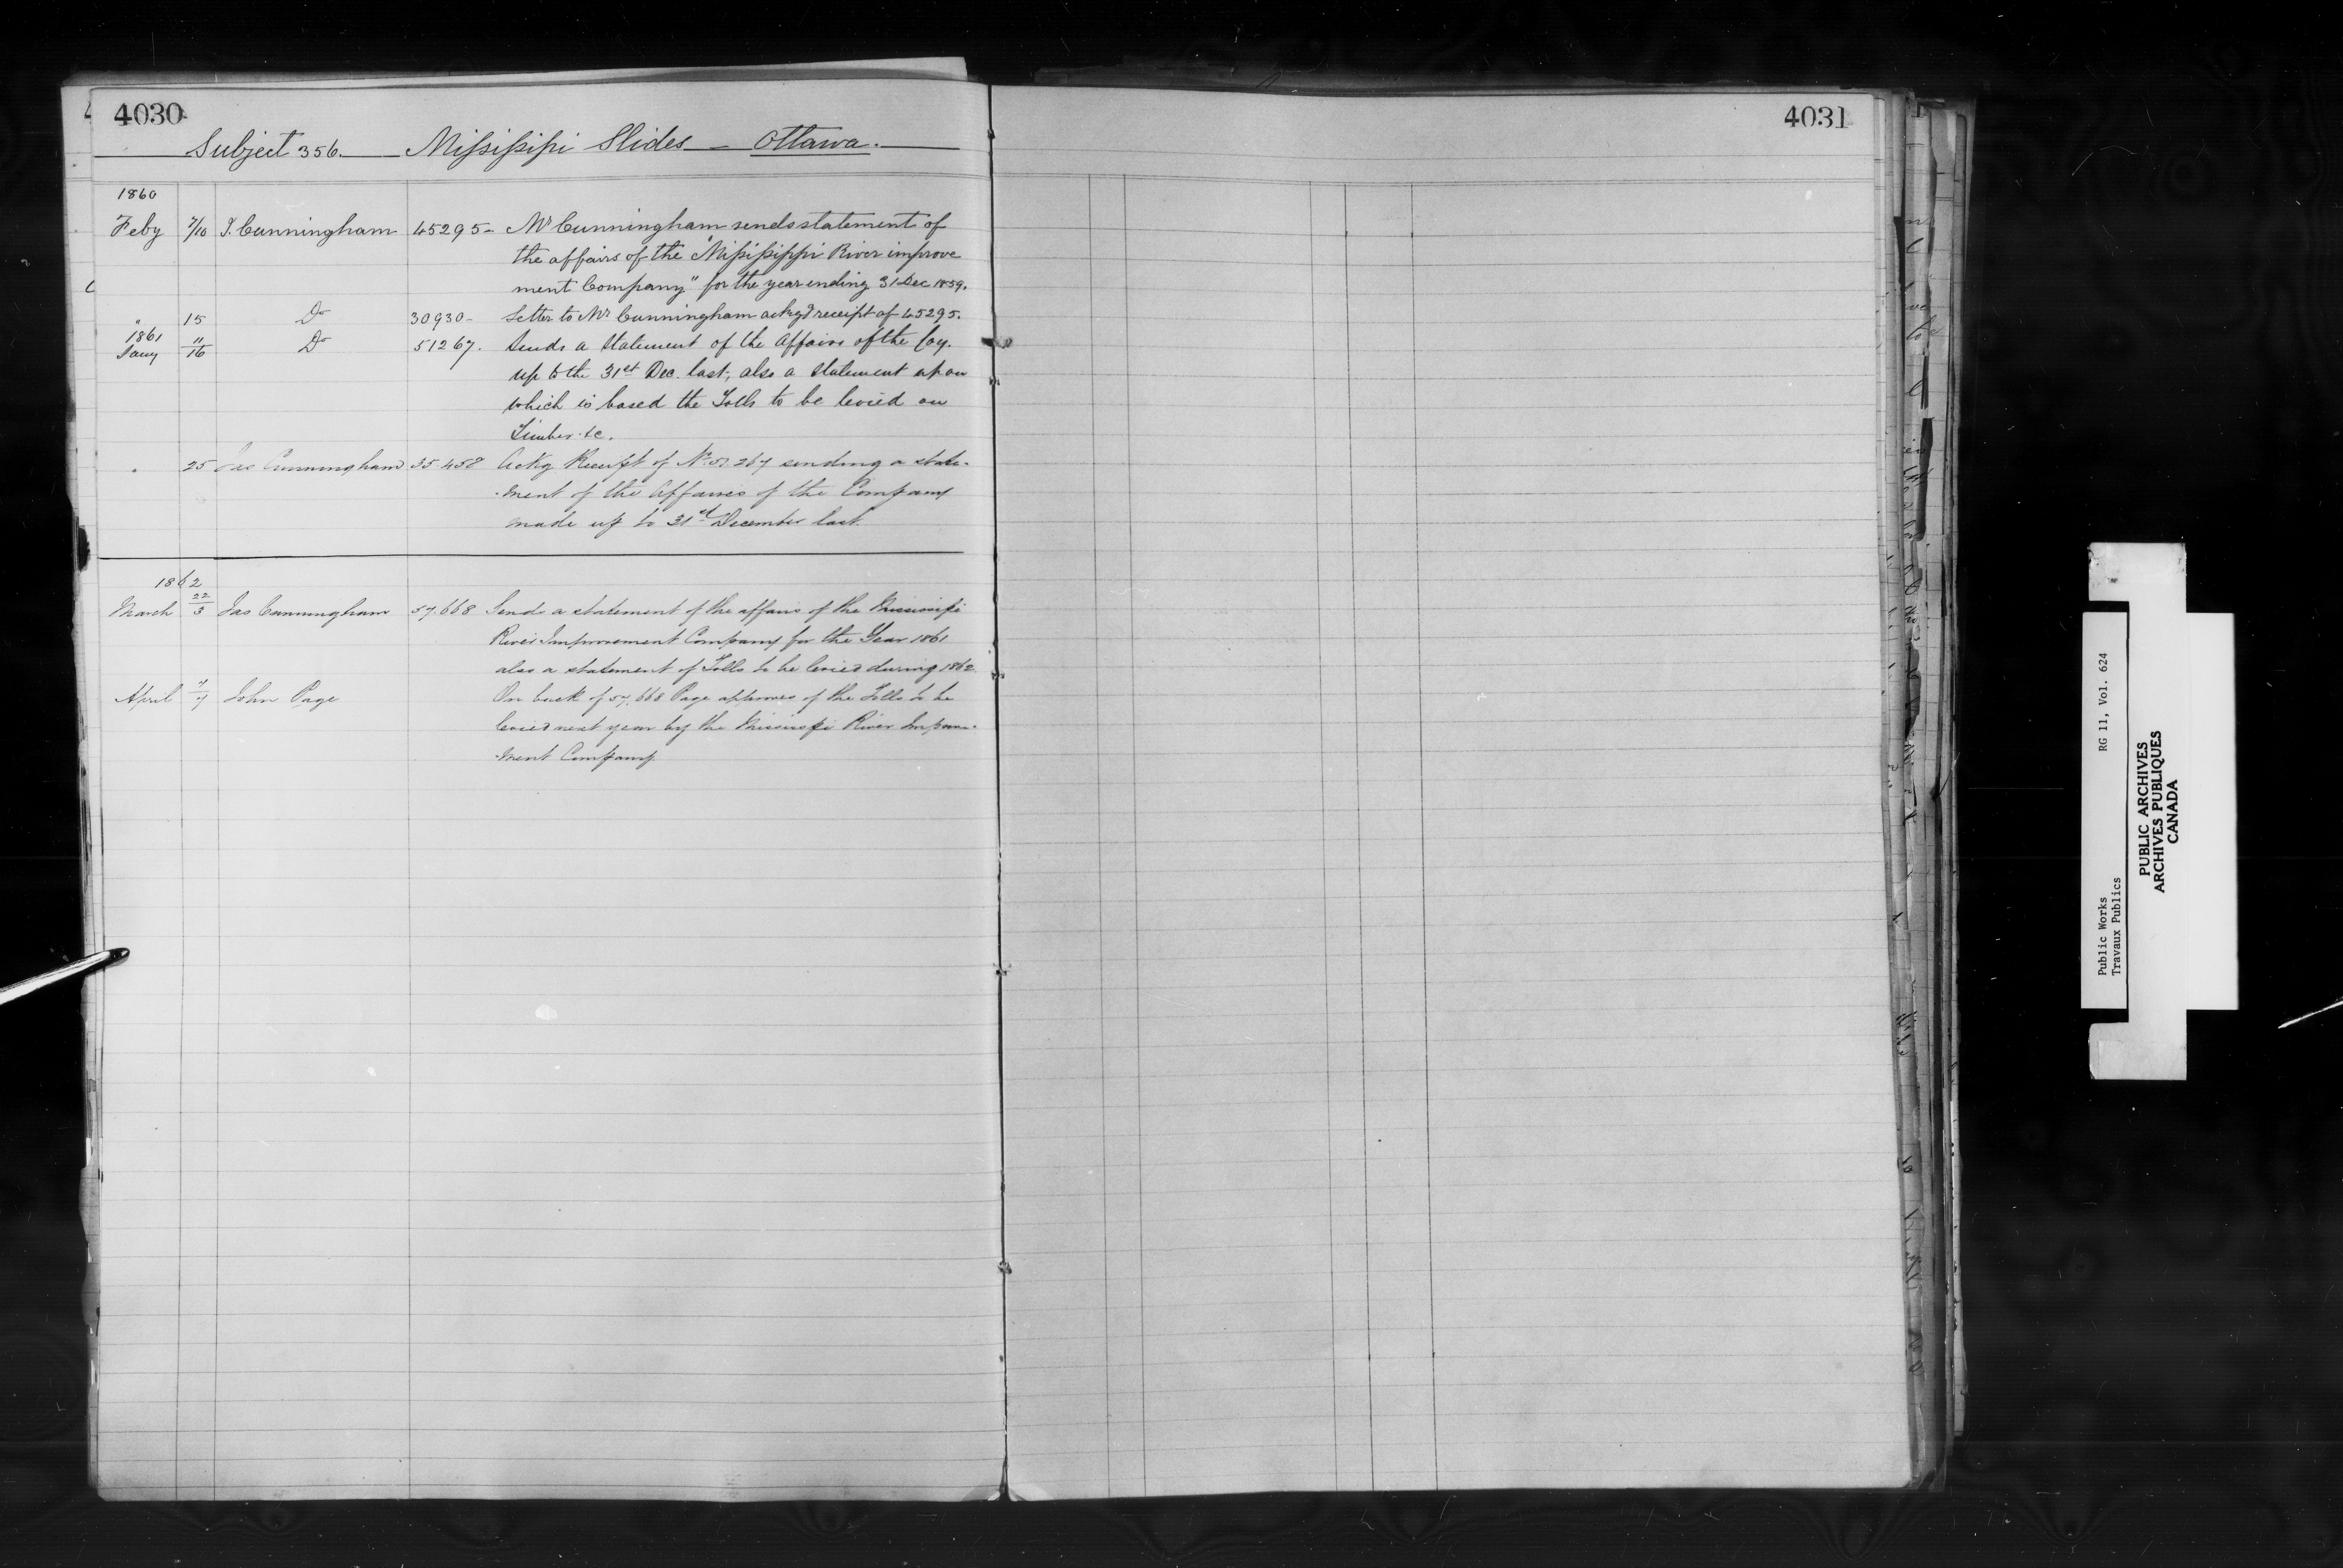 4030
Subject 356. Missisippi Slides - Ottawa.
1860
Feby 7/10 J. Cunningham 45295- Mr Cunningham sends statement of
the affairs of the "Missisippi River improve
ment Company" for the year ending 31 Dec 1859.
" 15 Do 30930- Letter to Mr Cunningham ackg'd receipt of 45295.
1861
Jany 11/16 Do 51267. Sends a Statement of the Affairs of the Coy.
up to the 31st Dec. last, also a Statement upon
which is based the Tolls to be levied on
Timber &c.
" 25 Jas Cunningham 35.458 Ackg Receipt of No 51.267 sending a state-
-ment of the Affaires of the Company
made up to 31st December last.
1862
March 22/3 Jas Cunningham 57.668 Sends a statement of the affairs of the Missisipi
River Improvement Company for the Year 1861
also a statement of Tolls to be levied during 1862
April /7 John Page On back of 57.668 Page approves of the Tolls to be
levied next year by the Missisipi River Improve-
-ment Company
4031
Public Works RG 11, Vol. 624
Travaux Publics
PUBLIC ARCHIVES
ARCHIVES PUBLIQUES
CANADA